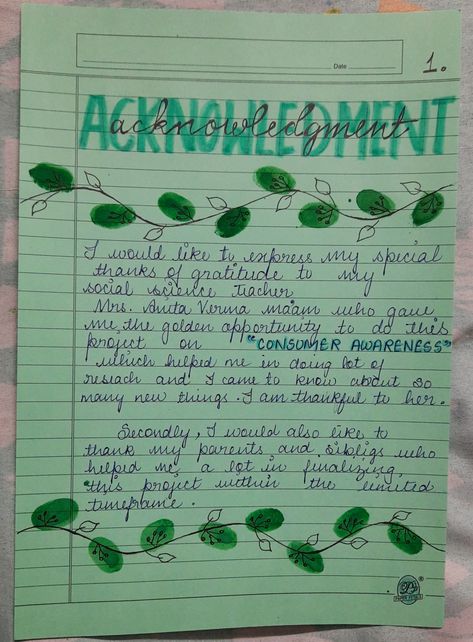 Date
1.
ACKNOWLEDGMENT
acknowledgment
I would like to express my special
thanks of gratitude to my
social science teacher
Mrs. Anita Verma ma'am who gave
me the golden opportunity to do this
project on "CONSUMER AWARENESS"
which helped me in doing lot of
reseach and I came to know about so
many new things. I am thankful to her.
Secondly, I would also like to
thank my parents and sibligs who
helped me a lot in finalizing
this project within the limited
timeframe.